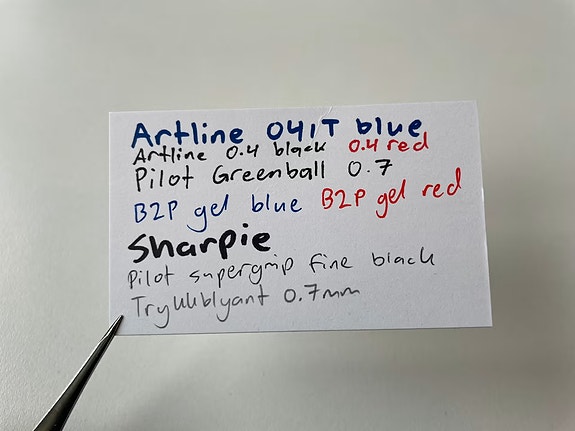 Artline 041T blue
Artline 0.4 black 0.4 red
Pilot Greenball 0.7
B2P gel blue B2P gel red
Sharpie
Pilot supergrip fine black
Trykkblyant 0.7mm